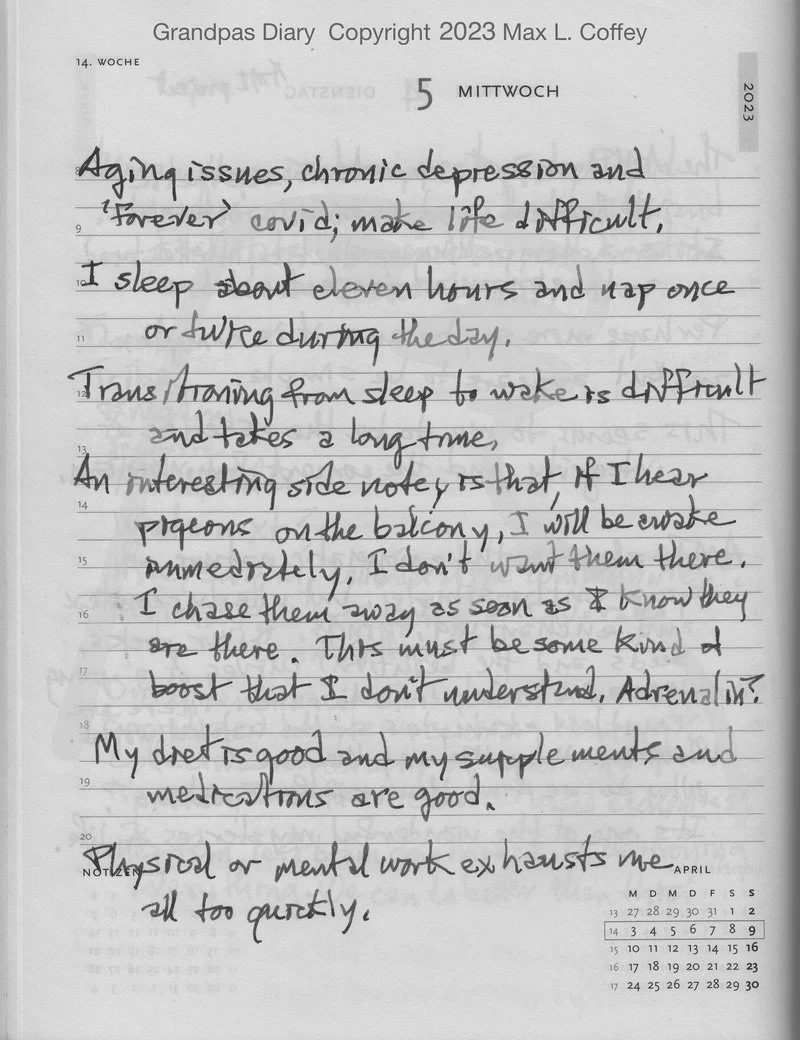 Grandpas Diary Copyright 2023 Max L. Coffey
14. WOCHE
5 MITTWOCH
2023
Aging issues, chronic depression and
'forever' covid; make life difficult.
9
I sleep about eleven hours and nap once
10
or twice during the day.
11
Transitioning from sleep to wake is difficult
12
and takes a long time,
13
An interesting side note, is that, if I hear
14
pigeons on the balcony, I will be awake
15
immediately. I don't want them there.
I chase them away as soon as I know they
16
are there. This must be some kind of
17
boost that I don't understand. Adrenalin?
18
My diet is good and my supplements and
19
medications are good.
20
Physical or mental work exhausts me
NOTIZEN
all too quickly.
APRIL
M D M D F S S
13 27 28 29 30 31 1 2
14 3 4 5 6 7 8 9
15 10 11 12 13 14 15 16
16 17 18 19 20 21 22 23
17 24 25 26 27 28 29 30